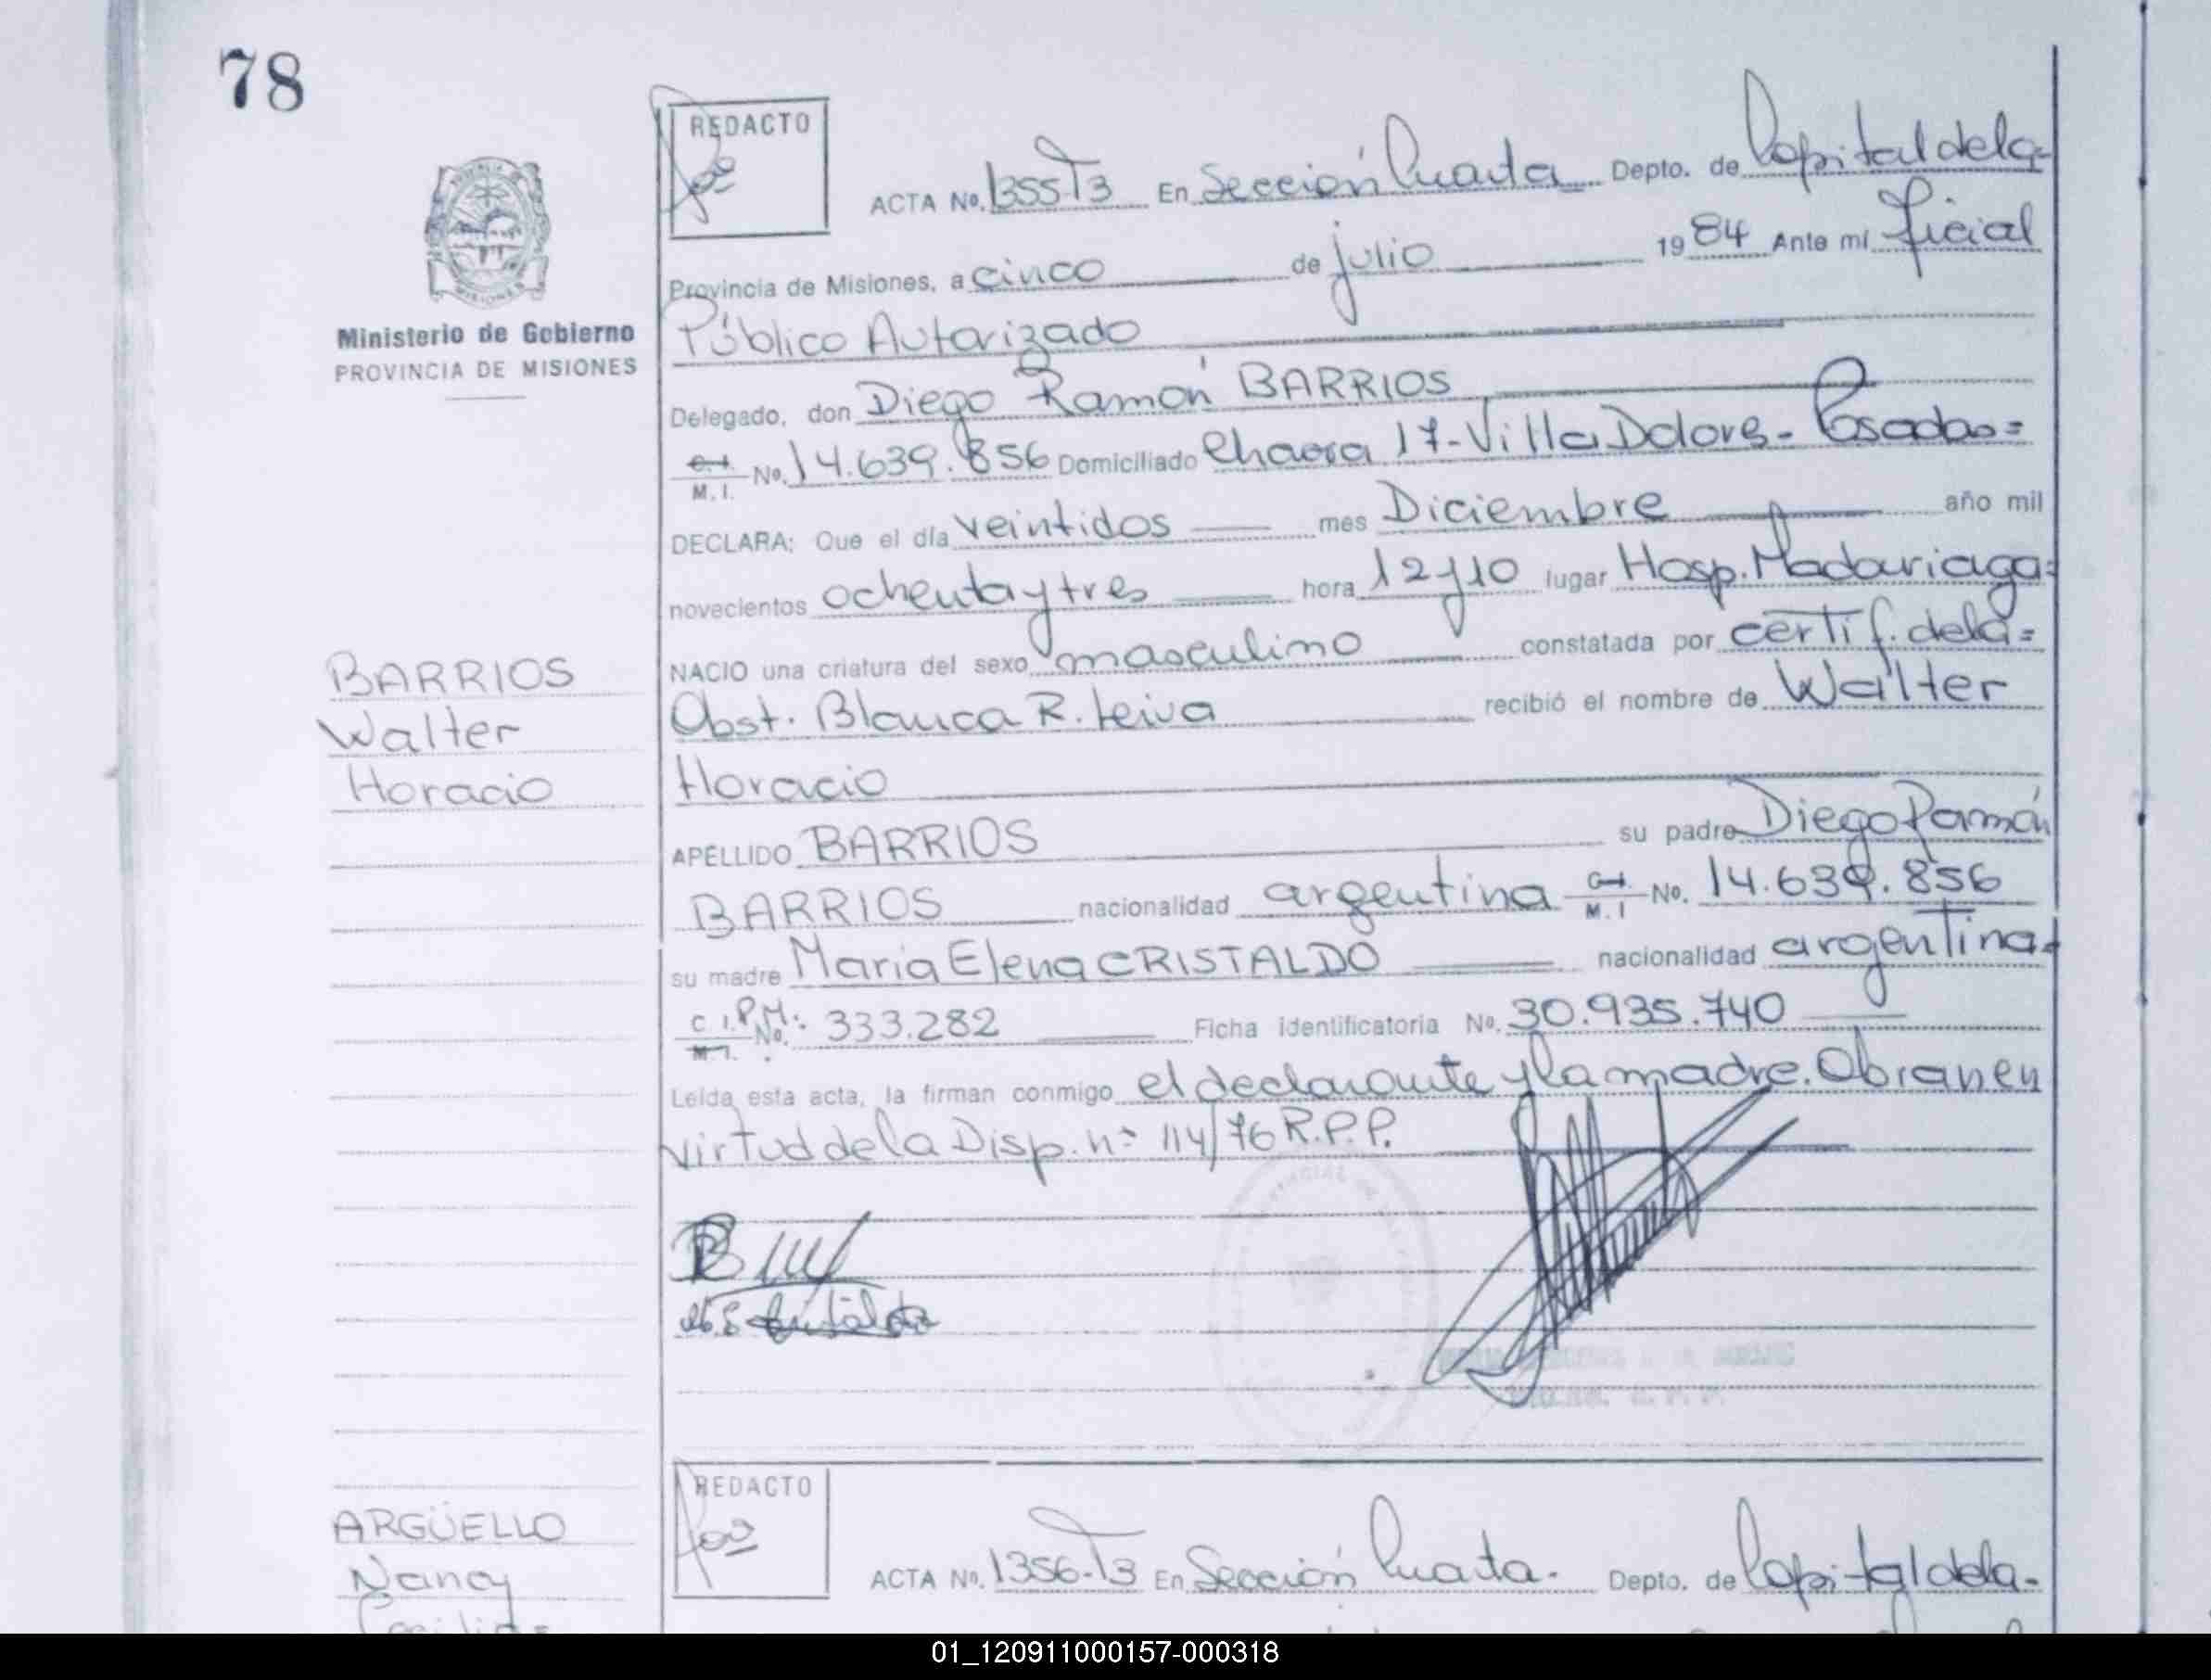 78
REDACTO
ACTA No. 1355-T3 En Sección Cuarta Depto. de Capital de la
Provincia de Misiones, a cinco de julio 1984 Ante mí Oficial
Público Autorizado
Ministerio de Gobierno
PROVINCIA DE MISIONES
Delegado, don Diego Ramón BARRIOS
C.I. M.I. No. 14.639.856 Domiciliado Chacra 17-Villa Dolores- Posadas=
DECLARA: Que el día veintidos mes Diciembre año mil
novecientos ochenta y tres hora 12 y 10 lugar Hosp. Madariaga=
NACIO una criatura del sexo masculino constatada por certif. de la=
Obst. Blanca R. Leiva recibió el nombre de Walter
Horacio
BARRIOS
Walter
Horacio
APELLIDO BARRIOS su padre Diego Ramón
BARRIOS nacionalidad argentina C.I. M.I No. 14.639.856
su madre María Elena CRISTALDO nacionalidad argentina=
C.I.P.M: M.I. No. 333.282 Ficha identificatoria No. 30.935.740
Leída esta acta, la firman conmigo el declarante y la madre. Obran en
virtud de la Disp. nº 114/76 R.P.P.
REDACTO
ARGÜELLO
Nancy
ACTA No. 1356-T3 En Sección Cuarta. Depto. de Capital de la-
01_120911000157-000318